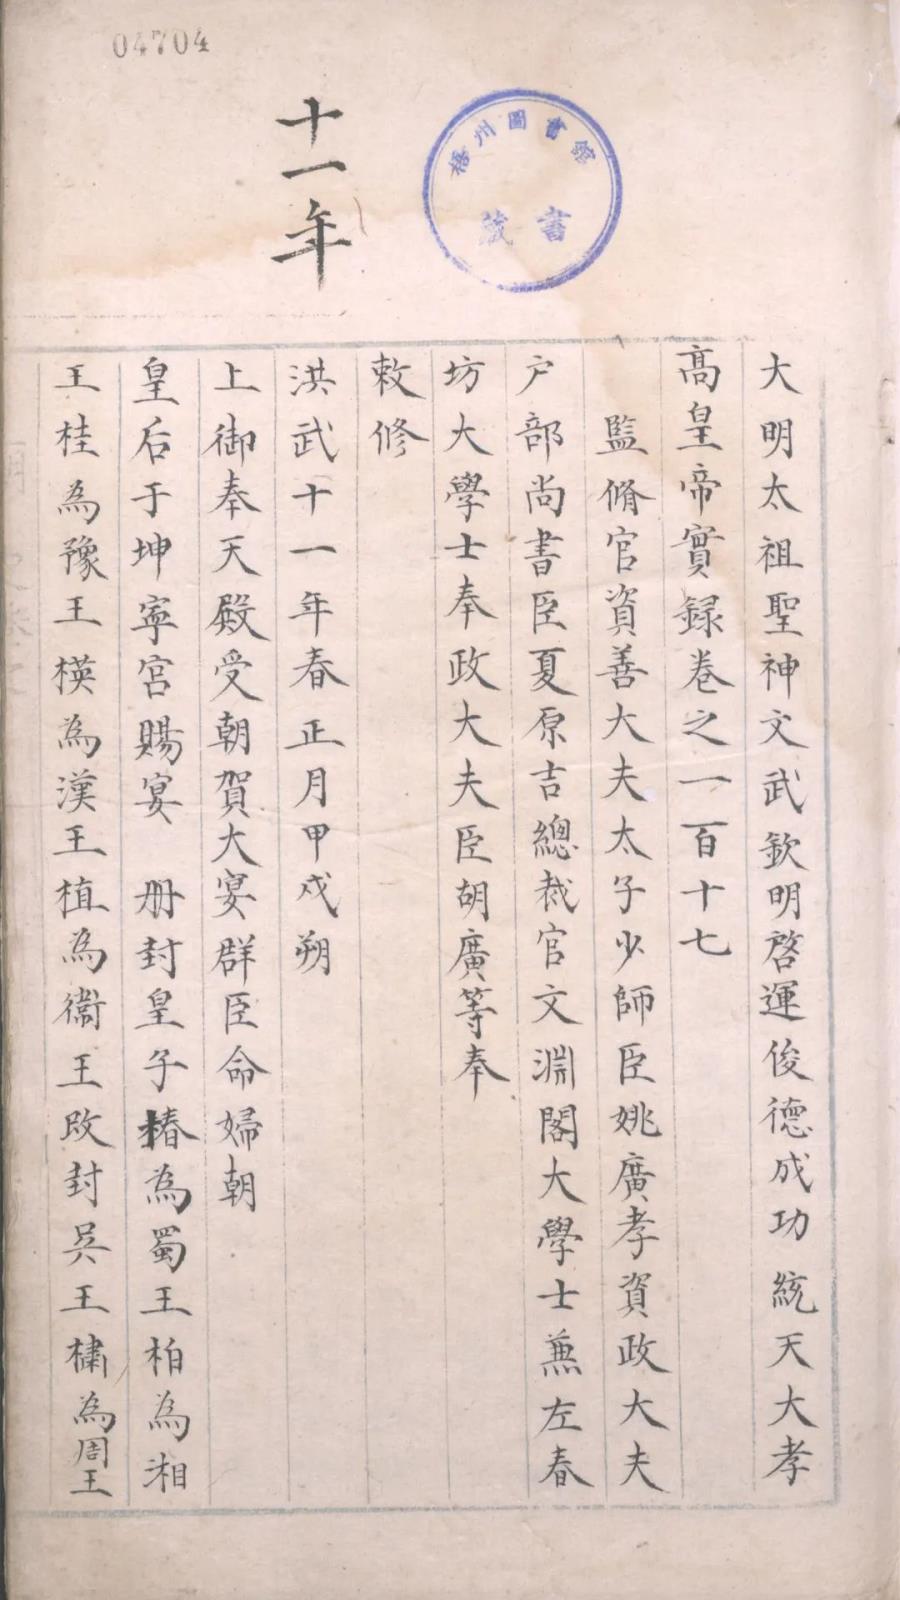 04704
十一年
梧州圖書館
藏書
大明太祖聖神文武欽明啓運俊德成功統天大孝
高皇帝實録卷之一百十七
監脩官資善大夫太子少師臣姚廣孝資政大夫
户部尚書臣夏原吉總裁官文淵閣大學士兼左春
坊大學士奉政大夫臣胡廣等奉
敕修
洪武十一年春正月甲戌朔
上御奉天殿受朝賀大宴群臣命婦朝
皇后于坤寧宮賜宴　册封皇子椿為蜀王柏為湘
王桂為豫王楧為漢王植為衞王改封吳王橚為周王